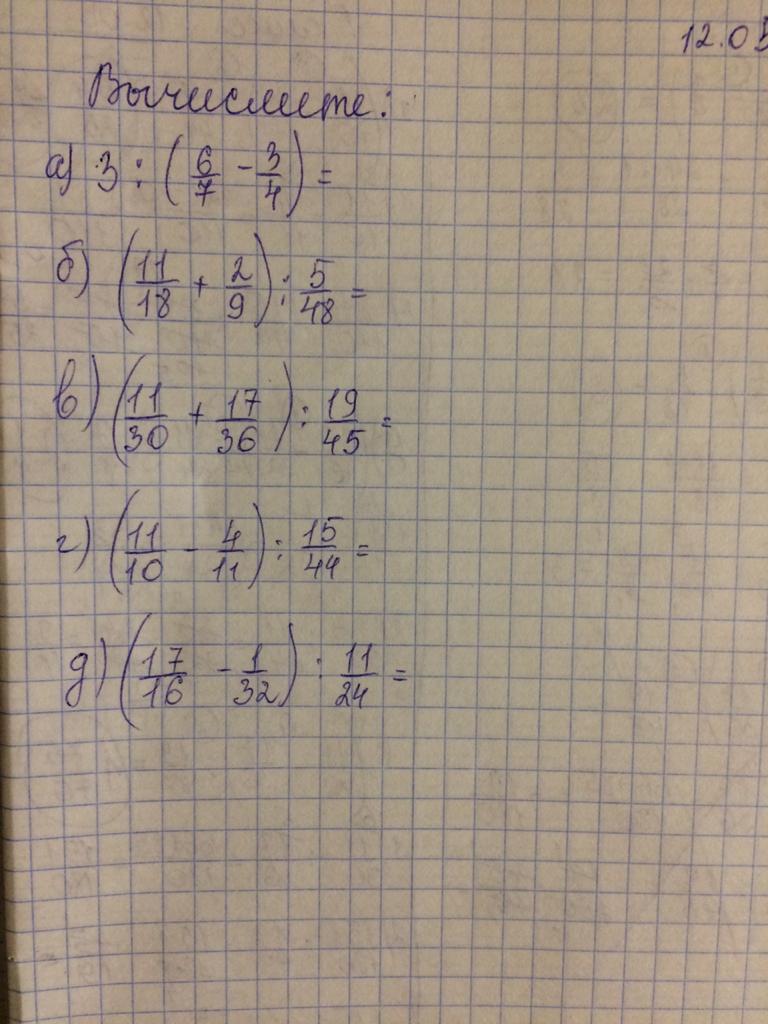 12.05
Вычислите:
а) 3 : (6/7 - 3/4) =
б) (11/18 + 2/9) : 5/48 =
в) (11/30 + 17/36) : 19/45 =
г) (11/10 - 4/11) : 15/44 =
д) (17/16 - 1/32) : 11/24 =